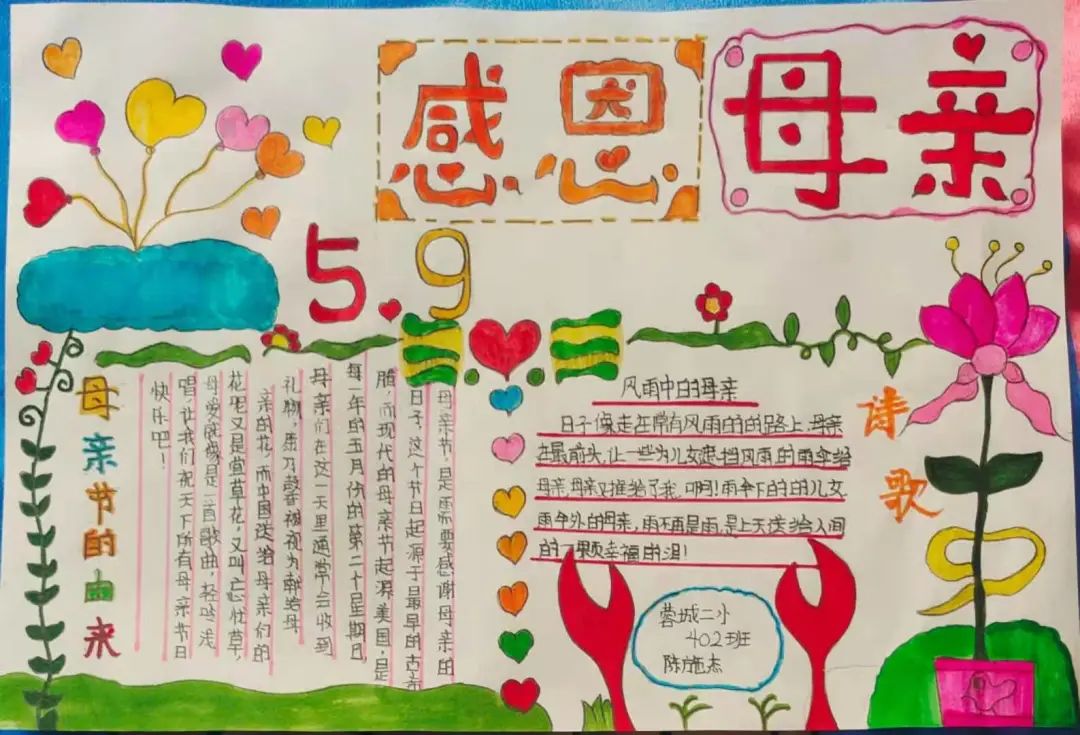 感恩
母亲
5.9
母亲节的由来
母亲节，是需要感谢母亲的
日子，这个节日起源于最早的古希
腊，而现代的母亲节起源美国，是
每一年的五月份的第二十星期日
母亲们在这一天里通常会收到
礼物，康乃馨被视为献给母
亲的花，而中国送给母亲们的
花呢又是萱草花，又叫忘忧草，
母爱就像是一首歌曲 轻吟浅
唱让我们祝天下所有母亲节日
快乐吧！
诗歌
风雨中的母亲
日子像走在常有风雨的的路上，母亲
在最前头，让一些为儿女遮挡风雨的雨伞给
母亲，母亲又推给了我，啊！雨伞下的的儿女
雨伞外的母亲，雨不再是雨，是上天送给人间
的一颗幸福的泪！
蓉城二小
402班
陈施杰